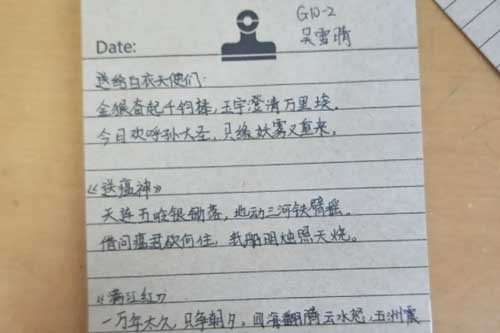 G10-2
吴雪腾
Date:
送给白衣天使们:
金猴奋起千钧棒,玉宇澄清万里埃。
今日欢呼孙大圣,只缘妖雾又重来。
《送瘟神》
天连五岭银锄落,地动三河铁臂摇。
借问瘟君欲何往,纸船明烛照天烧。
《满江红》
一万年太久,只争朝夕,四海翻腾云水怒,五洲震